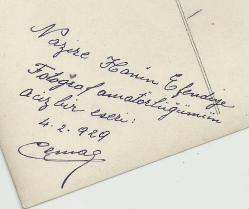 Nazire Hanım Efendiye
Fotoğraf amatörlüğümün
aciz bir eseri:
4. 2. 929